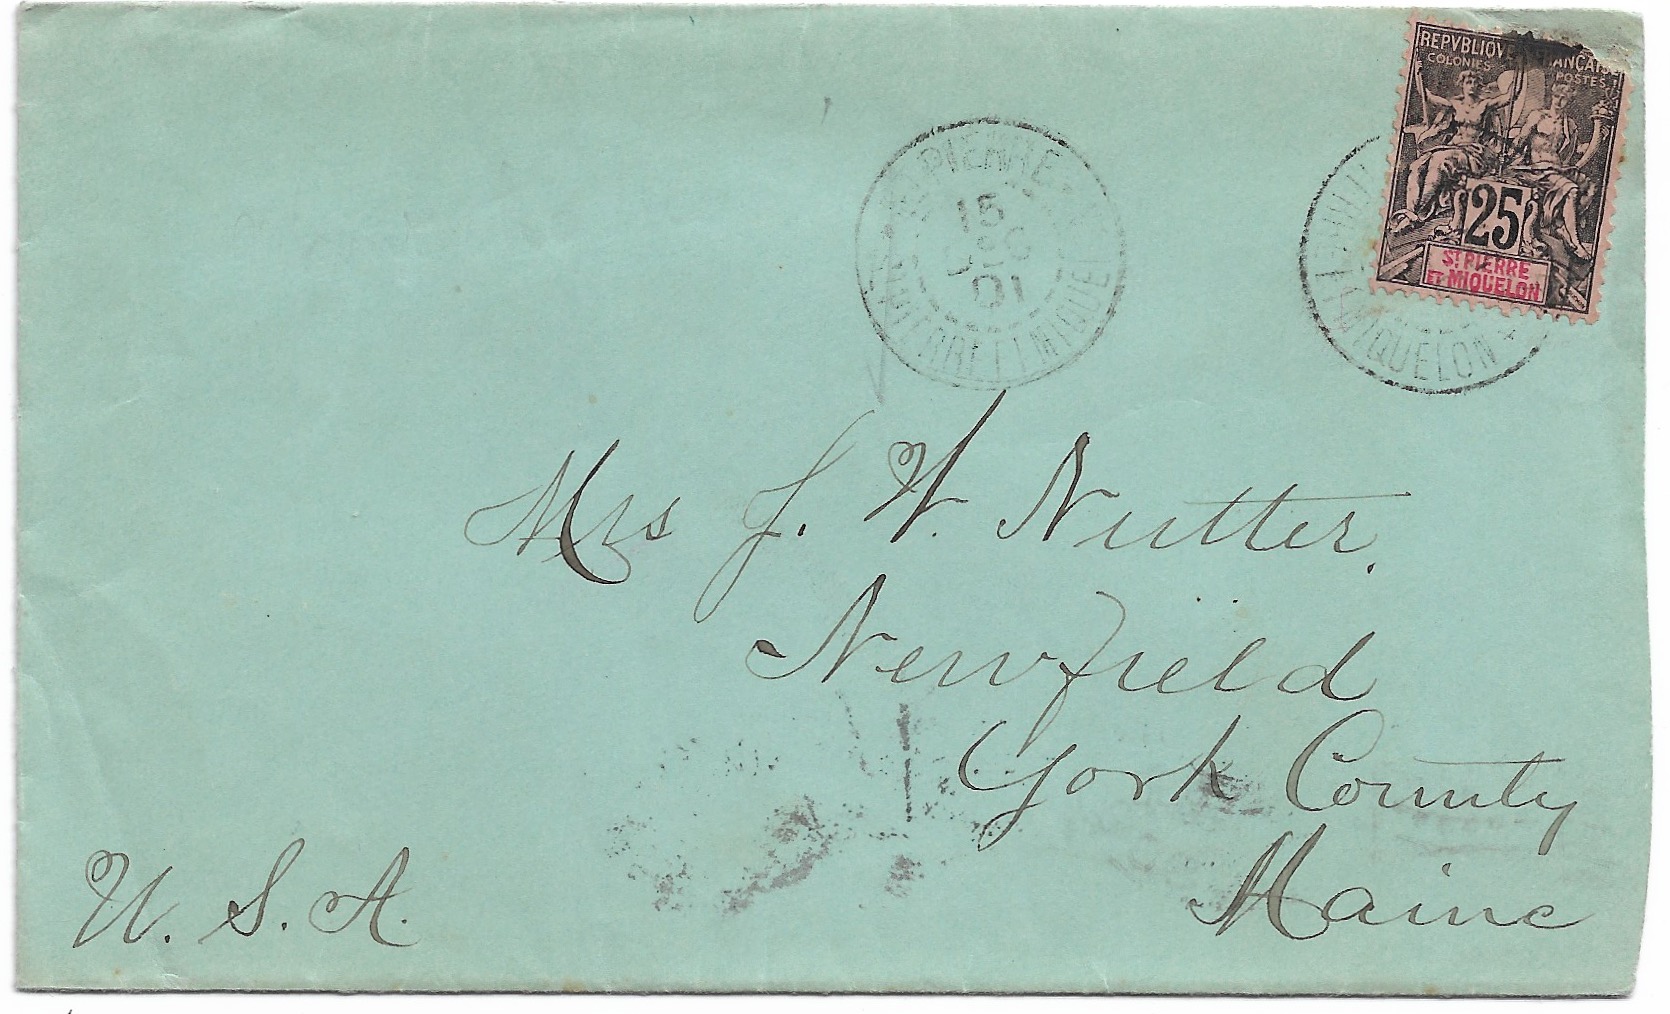 REPVBLIQVE FRANÇAISE
COLONIES POSTES
25
ST PIERRE
ET MIQUELON
ST PIERRE
15
DEC
01
ST PIERRE ET MIQUELON
MIQUELON
Mrs J. W. Nutter.
Newfield
York County
Maine
U. S. A.